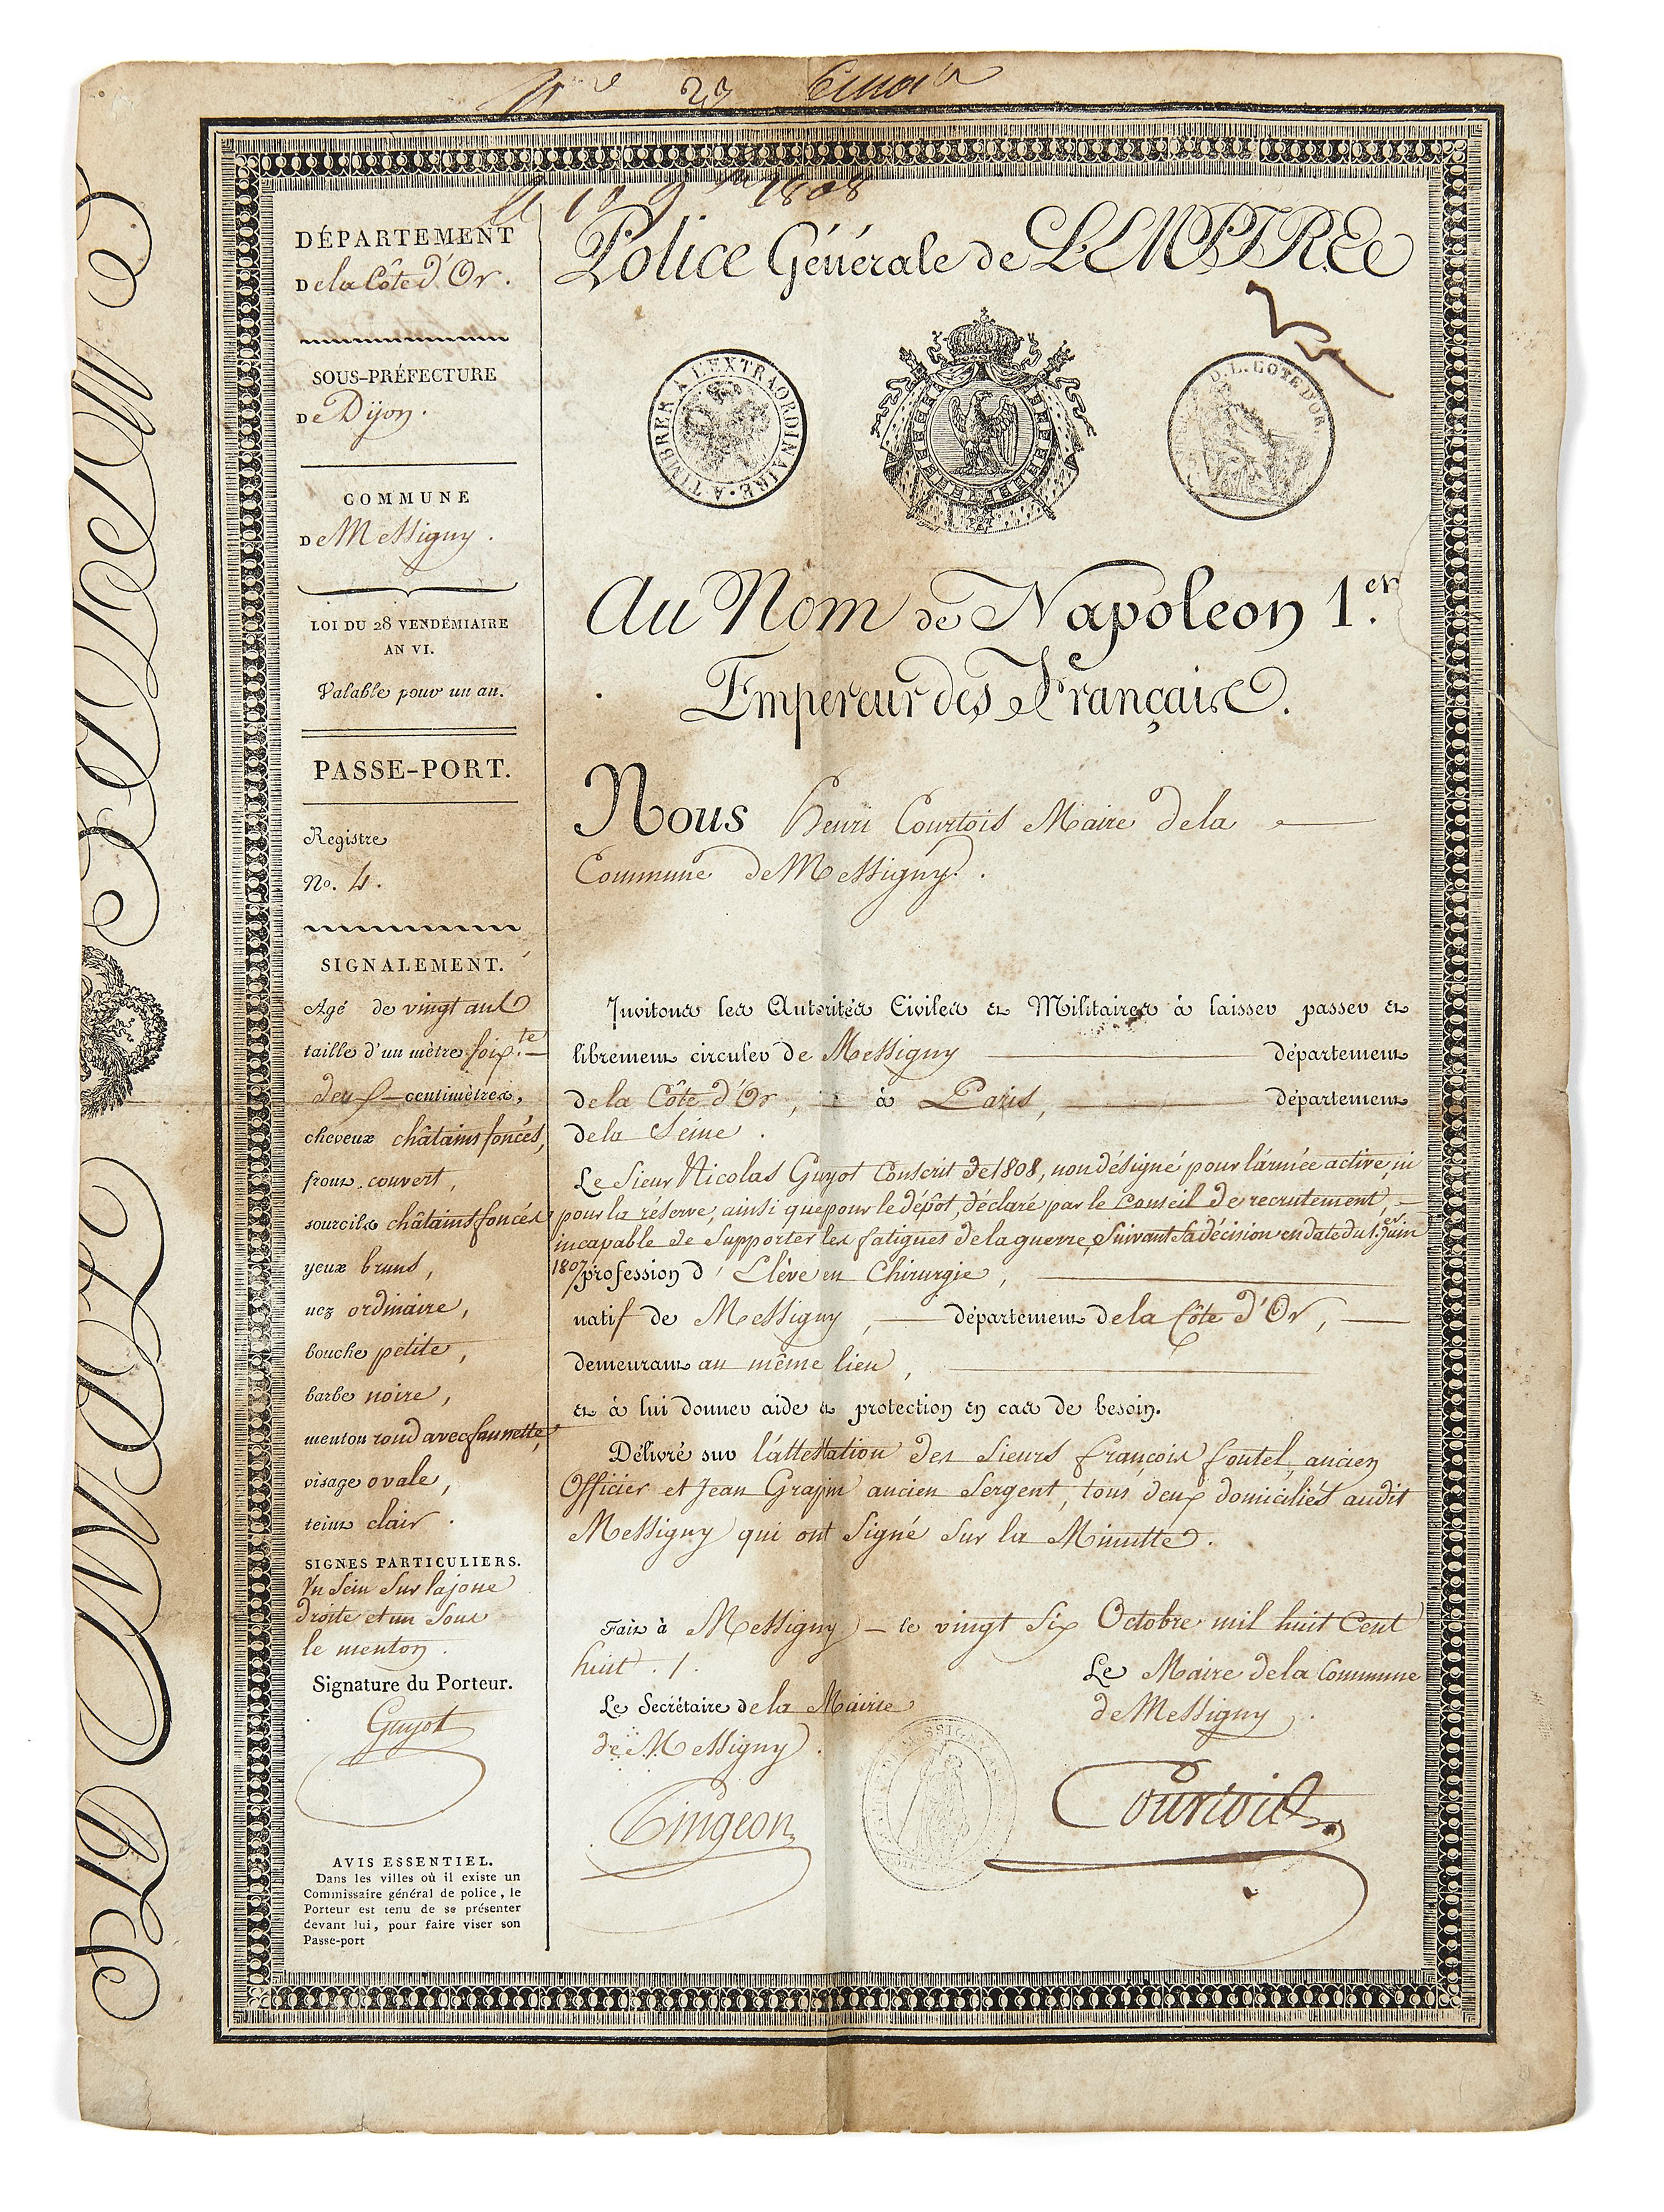 N° 29
le 10 9bre 1808
DÉPARTEMENT
De la Côte d'Or.
SOUS-PRÉFECTURE
De Dijon.
COMMUNE
De Messigny.
LOI DU 28 VENDÉMIAIRE
AN VI.
Valable pour un an.
PASSE-PORT.
Registre
No. 4.
SIGNALEMENT.
Agé de vingt ans
taille d'un mètre soix.te
deux centimètres,
cheveux châtains foncés,
front couvert,
sourcils châtains foncés
yeux bruns,
nez ordinaire,
bouche petite,
barbe noire,
menton rond avec fausnette,
visage ovale,
teint clair.
SIGNES PARTICULIERS.
Un Sein Sur la joue
droite et un Sous
le menton.
Signature du Porteur.
Guyot
AVIS ESSENTIEL.
Dans les villes où il existe un
Commissaire général de police, le
Porteur est tenu de se présenter
devant lui, pour faire viser son
Passe-port
Police Générale de L'EMPIRE
A TIMBRER À L'EXTRAORDINAIRE.
D. L. COTE D'OR.
Au Nom de Napoleon 1.er
Empereur des Français.
Nous Henri Courtois Maire de la
Commune de Messigny.
Invitons les Autorités Civiles et Militaires à laisser passer et
librement circuler de Messigny département
de la Côte d'Or, à Paris, département
de la Seine.
Le Sieur Nicolas Guyot Conscrit de 1808, non désigné pour l'armée active, ni
pour la réserve, ainsi que pour le dépôt, déclaré par le Conseil de recrutement,
incapable de Supporter les fatigues de la guerre, Suivant Sa décision en date du 1.er Juin
1807, profession d'Elève en Chirurgie,
natif de Messigny, département de la Côte d'Or,
demeurant au même lieu,
et à lui donner aide et protection en cas de besoin.
Délivré sur l'attestation des Sieurs françois foutel, ancien
Officier et Jean Grapin ancien Sergent, tous deux domiciliés audit
Messigny qui ont Signé Sur la Minutte.
Fait à Messigny le vingt Six Octobre mil huit Cent
huit.
Le Maire de la Commune
de Messigny.
Le Secrétaire de la Mairie
de Messigny.
Courtois